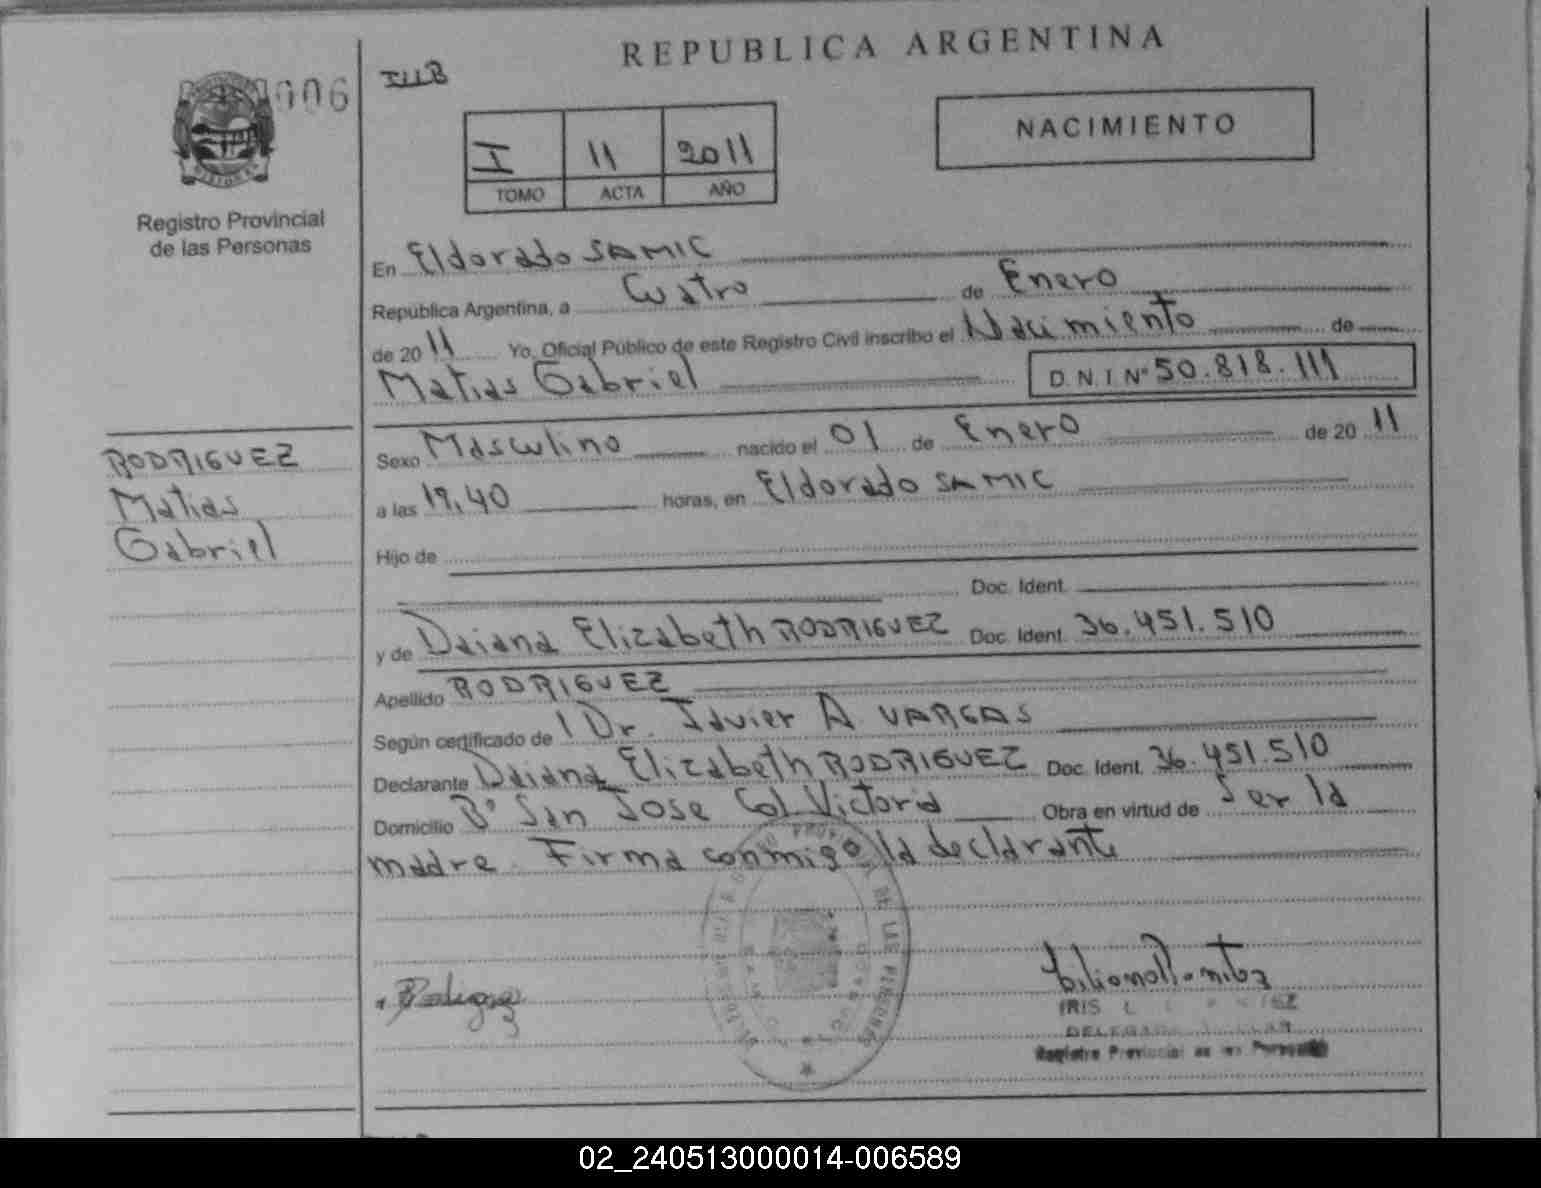 REPUBLICA ARGENTINA
006
I11B
NACIMIENTO
I 11 2011
TOMO ACTA AÑO
Registro Provincial
de las Personas
En Eldorado SAMIC
República Argentina, a Cuatro de Enero
de 2011 Yo, Oficial Público de este Registro Civil inscribo el Nacimiento de
Matias Gabriel D.N.I. Nº 50.818.111
RODRIGUEZ
Matias
Gabriel
Sexo Masculino nacido el 01 de Enero de 2011
a las 19,40 horas, en Eldorado SAMIC
Hijo de
Doc. Ident.
y de Daiana Elizabeth RODRIGUEZ Doc. Ident. 36.451.510
Apellido RODRIGUEZ
Según certificado de Dr. Javier A VARGAS
Declarante Daiana Elizabeth RODRIGUEZ Doc. Ident. 36.451.510
Domicilio Bº San Jose Col Victoria Obra en virtud de Ser la
madre. Firma conmigo la declarante
DE LAS PERSONAS
IRIS
Registro Provincial de las Personas
02_240513000014-006589